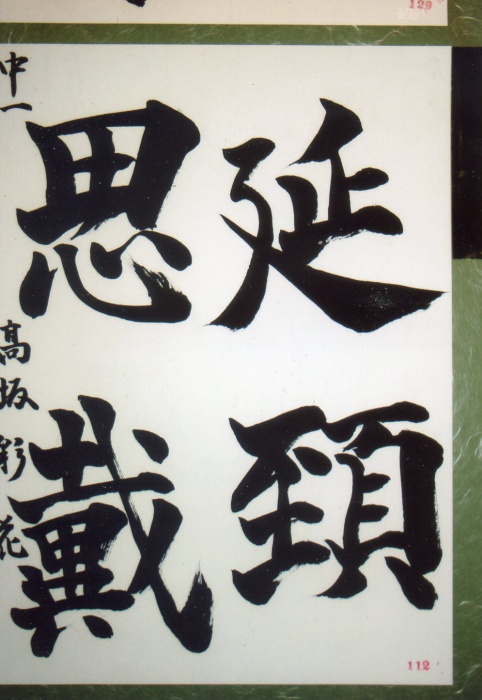 延頸
思戴
中一 高坂彩花
112
129